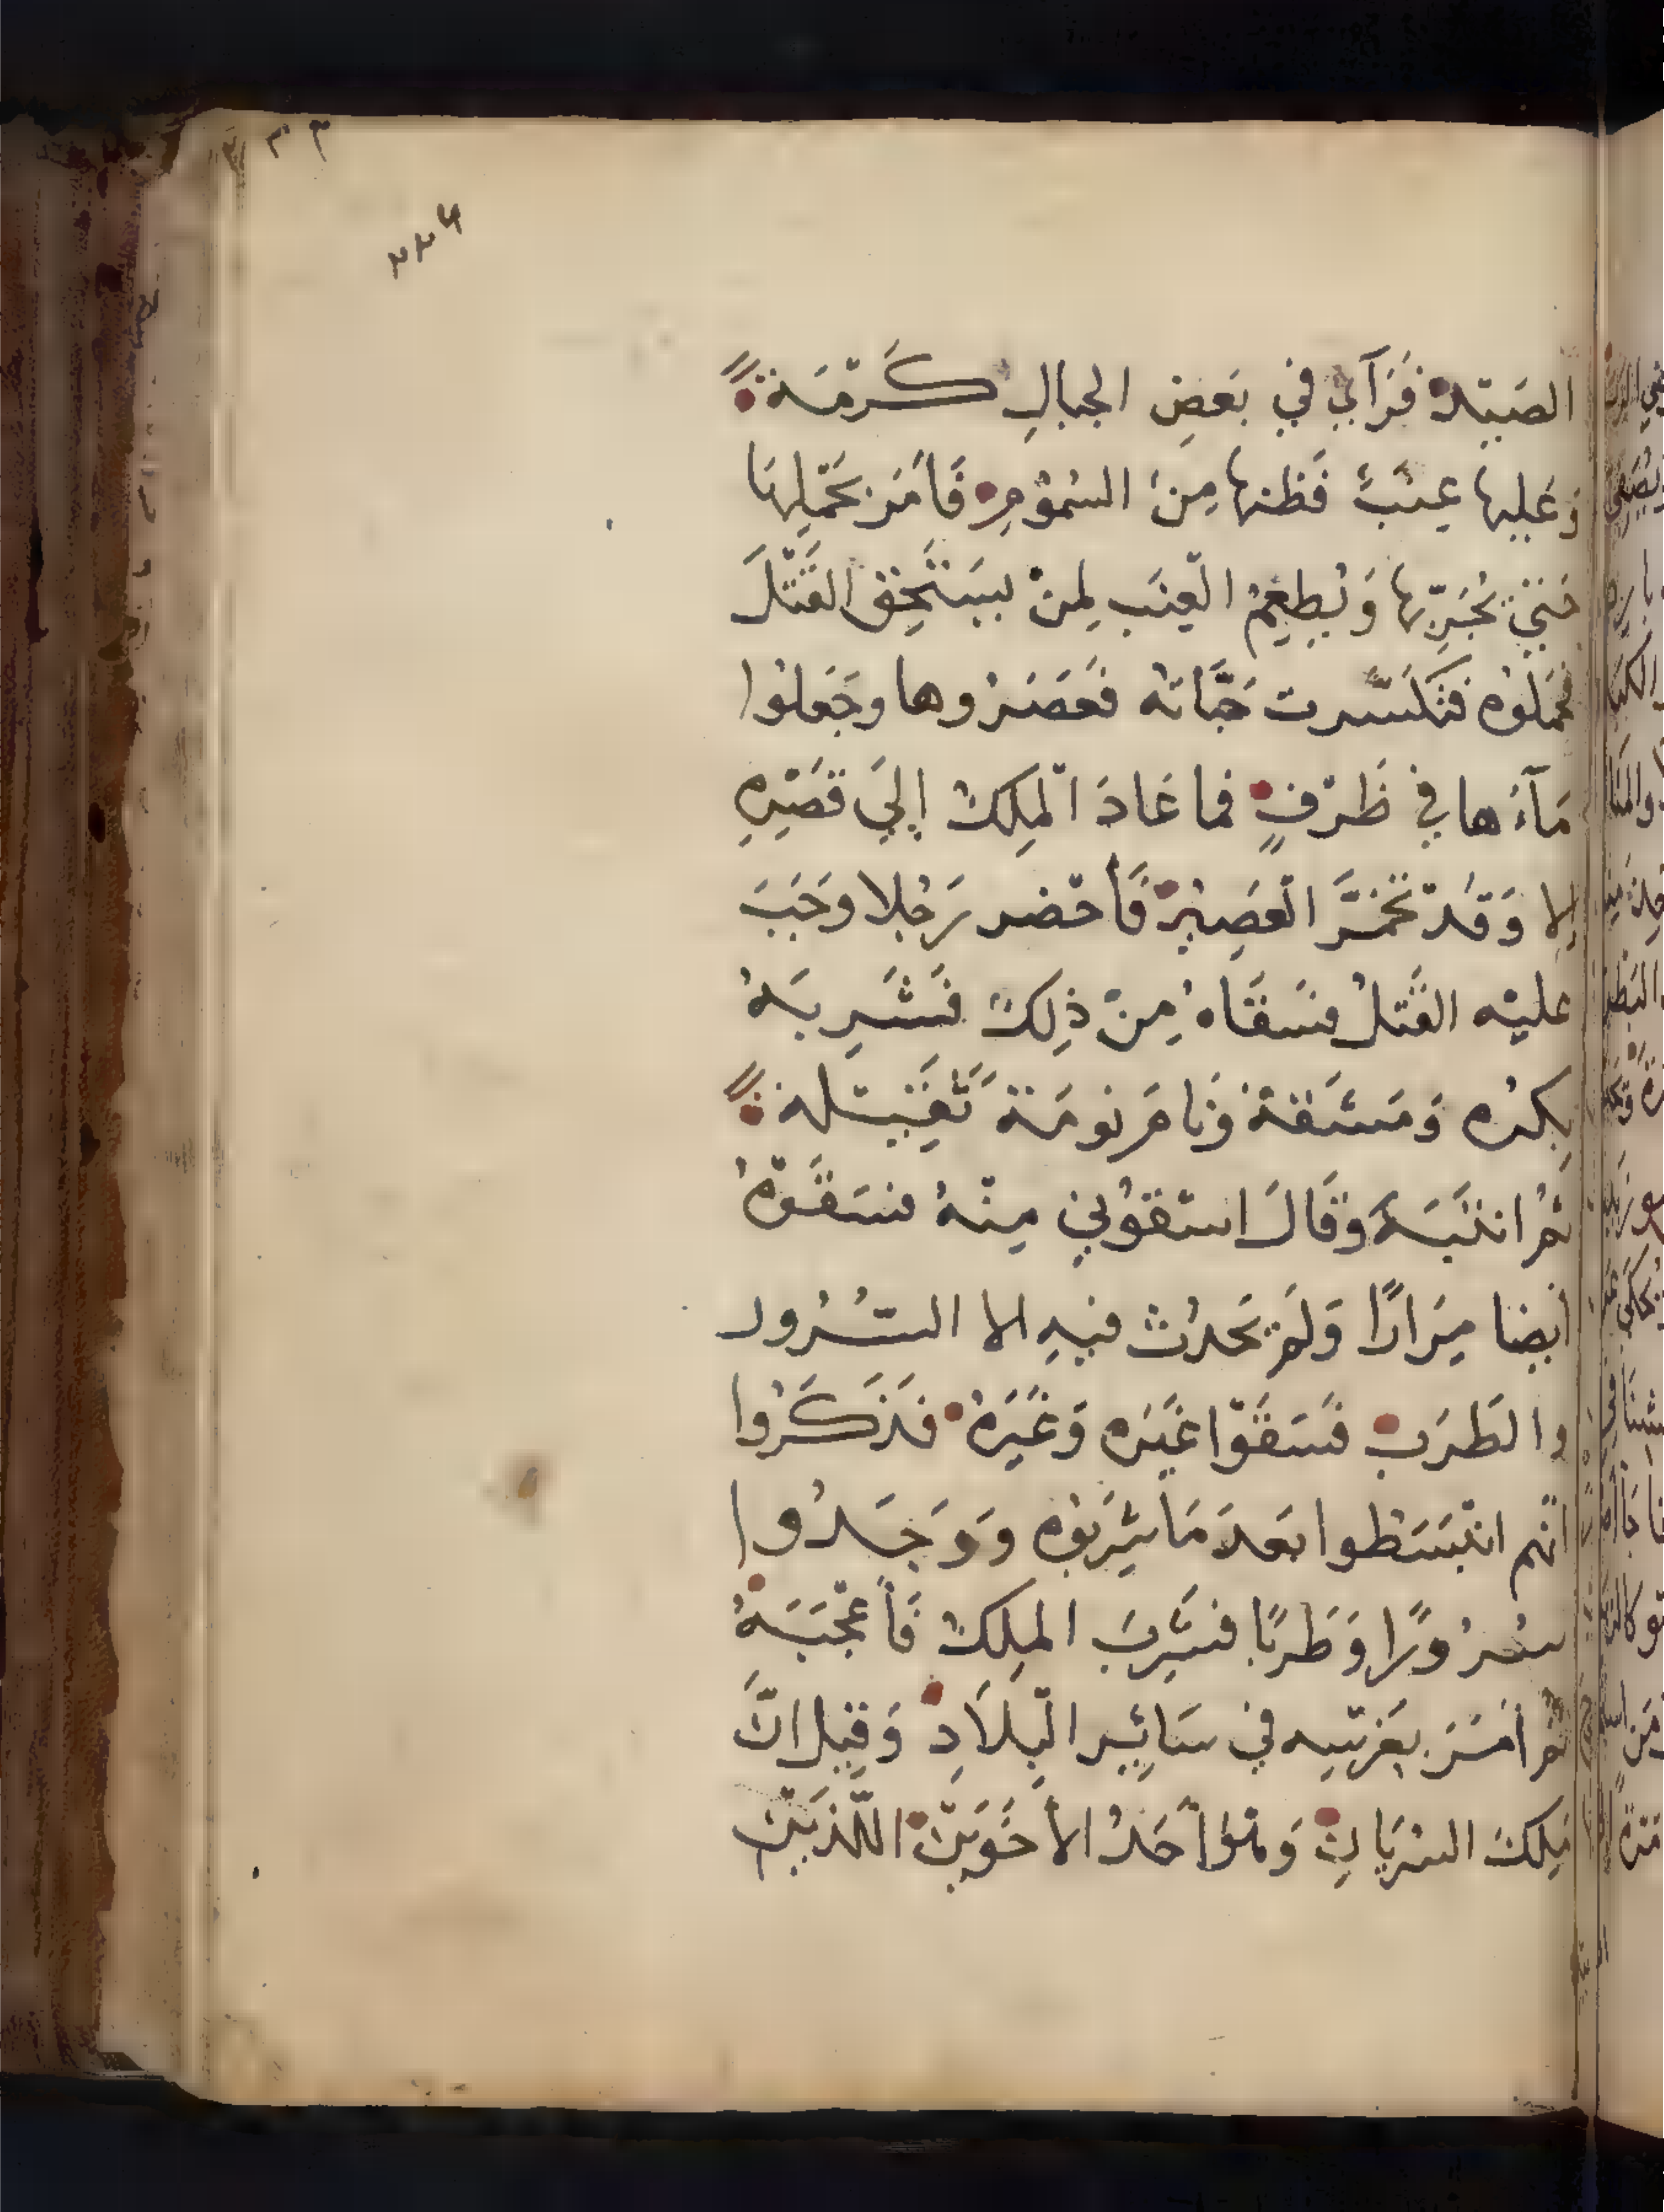 الصَيْدِ فَرَآي في بَعضِ الجبالِ كَرْمَة
وَعَليها عِنَبٌ فَظنها مِنَ السُمُوْمِ فَأمَرَ بحَمْلِهَا
حَتيَ يُجَرِّبها وَيُطعِمُ الْعِنَب لِمنْ يَسْتَحِق القَتْلَ
فحَملوُه فَتكَسَّرت حَبَّاته فَعَصَرُوها وجَعَلوُا
مَآءَها في ظَرْفٍ فما عَادَ الْمَلِكُ إلىَ قَصْرِهِ
إلا وَقَدْ تخَمَّرَ الْعَصِيْرُ فَأحْضر رَجُلا وَجَبَ
عليْه القَتلُ فسَقَاهُ مِنْ ذِلكَ فشَرِبَهُ
بِكُرْه وَمَشَقة وَنامَ نومَة ثَقِيْلة
ثمُ انتَبَهَ وَقَالَ اسْقوُني مِنْهُ فسَقَوْهُ
أيضا مِرَارًا وَلَمْ يَحدُث فيهِ الا السُّرُور
والطَرَب فَسَقَوْا غَيْره وَغَيْرَهُ فذَكَرُوا
انَّهم انْبَسَطوا بَعدَ مَا شَرِبَوُه وَوَجَدُوا
سُرُوْرًا وَطَرَبًا فشَرِبَ المَلِكُ فَأعْجَبَهُ
ثمُ امَرَ بِغَرْسِه في سَائِرِ الْبِلاَدِ وَقِيلَ انَّ
مَلِكَ السُرْيَانِ وَهُوَ أحَدُ الأخَوَيْنِ اللَّذَيْنِ